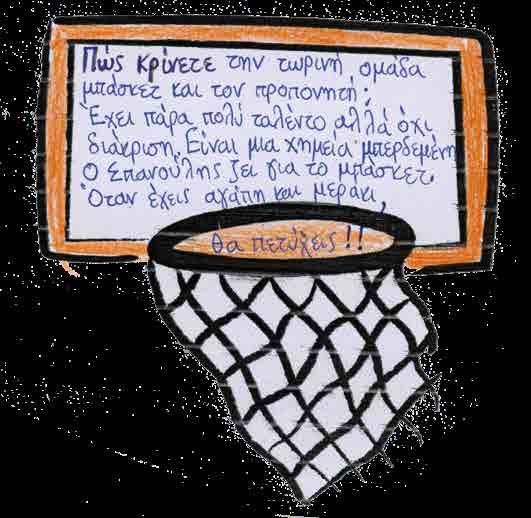 Πώς κρίνετε την τωρινή, ομάδα
μπάσκετ και τον προπονητή;
Έχει πάρα πολύ ταλέντο αλλά όχι
διάκριση. Είναι μια χημεία μπερδεμένη
Ο Σπανούλης ζει για το μπάσκετ.
Όταν έχεις αγάπη και μεράκι,
θα πετύχεις!!